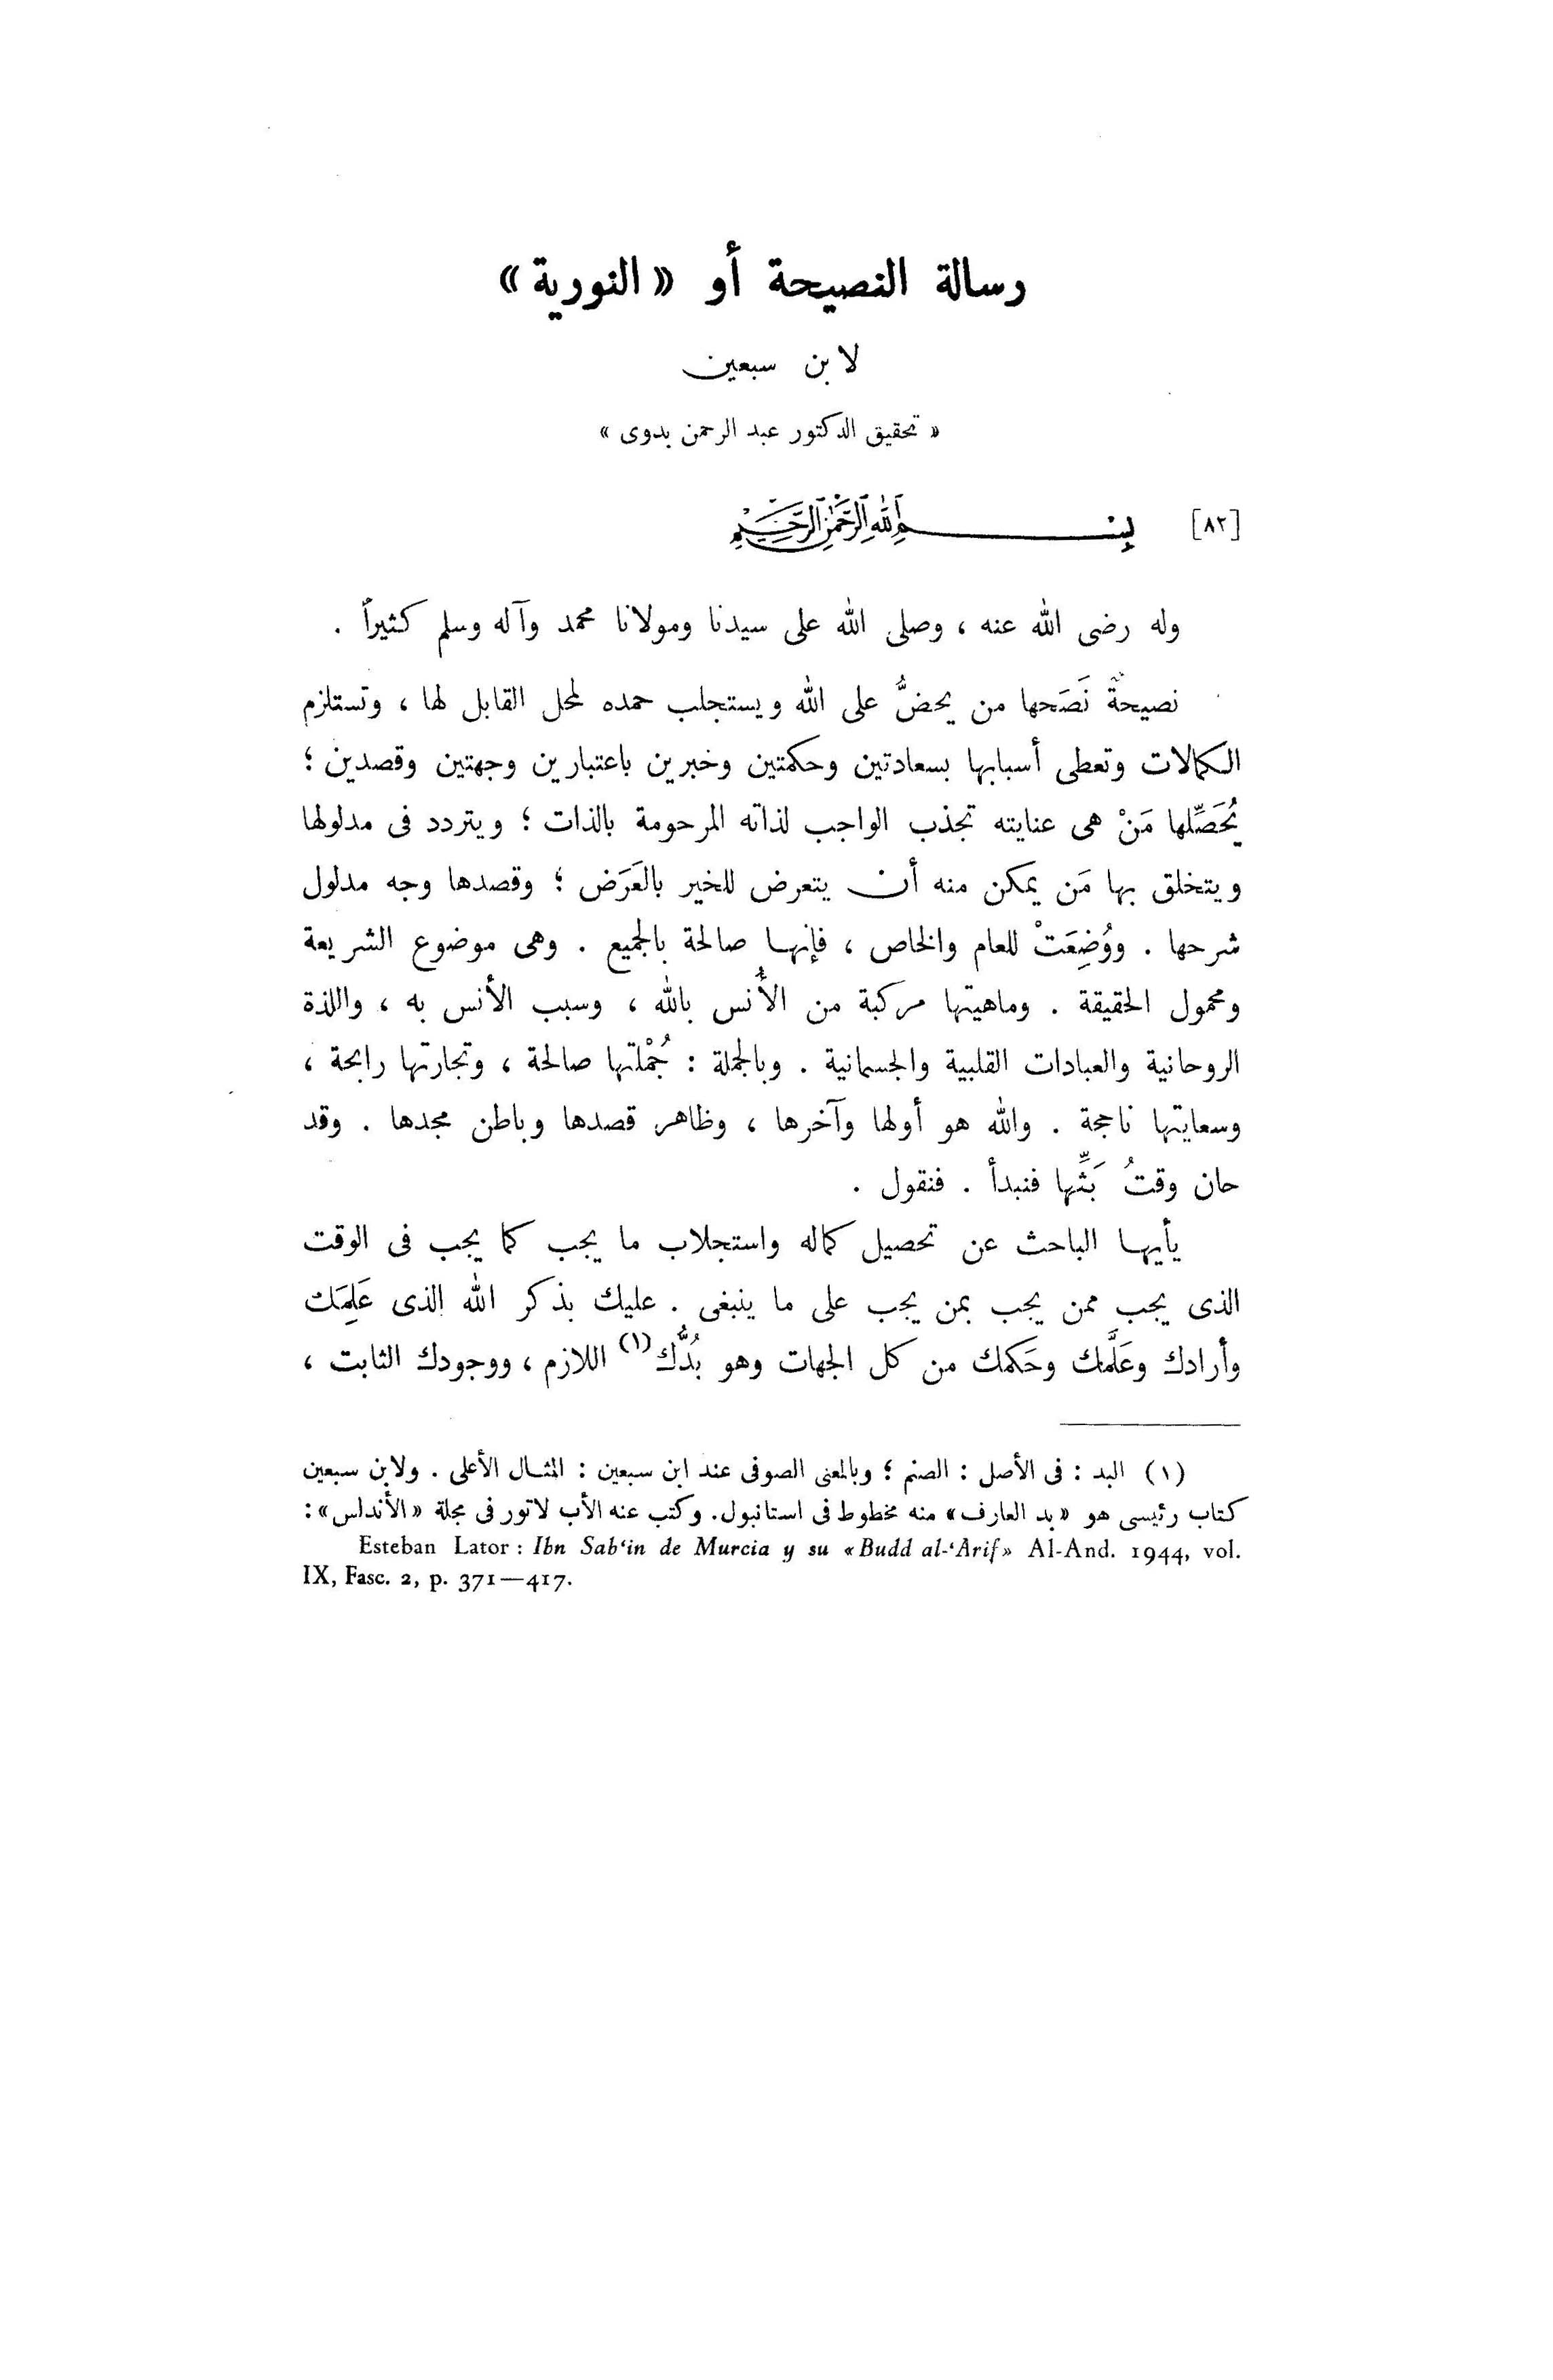 رسالة النصيحة أو «النورية»
لابن سبعين
« تحقيق الدكتور عبد الرحمن بدوى »
[٨٢] بِسْمِ اللهِ الرَّحْمٰنِ الرَّحِيمِ
وله رضى الله عنه ، وصلى الله على سيدنا ومولانا محمد وآله وسلم كثيراً .
نصيحةٌ نَصَحها من يحضُّ على الله ويستجلب حمده لمحل القابل لها ، وتستلزم
الكمالات وتعطى أسبابها بسعادتين وحكمتين وخبرين باعتبارين وجهتين وقصدين ؛
يُحَصِّلها مَنْ هى عنايته تجذب الواجب لذاته المرحومة بالذات ؛ ويتردد فى مدلولها
ويتخلق بها مَن يمكن منه أن يتعرض للخير بالعَرَض ؛ وقصدها وجه مدلول
شرحها . ووُضِعَتْ للعام والخاص ، فإنها صالحة بالجميع . وهى موضوع الشريعة
ومحمول الحقيقة . وماهيتها مركبة من الأُنس بالله ، وسبب الأنس به ، واللذة
الروحانية والعبادات القلبية والجسمانية . وبالجملة : جُمْلتها صالحة ، وتجارتها رابحة ،
وسعايتها ناجحة . والله هو أولها وآخرها ، وظاهر قصدها وباطن مجدها . وقد
حان وقتُ بَثِّها فنبدأ . فنقول .
يأيها الباحث عن تحصيل كماله واستجلاب ما يجب كما يجب فى الوقت
الذى يجب ممن يجب بمن يجب على ما ينبغى . عليك بذكر الله الذى عَلِمَك
وأرادك وعَلَّمك وحَكمك من كل الجهات وهو بُدُّك(١) اللازم ، ووجودك الثابت ،
(١) البد : فى الأصل : الصنم ؛ وبالمعنى الصوفى عند ابن سبعين : المثال الأعلى . ولابن سبعين
كتاب رئيسى هو «بد العارف» منه مخطوط فى استانبول. وكتب عنه الأب لاتور فى مجلة «الأندلس» :
Esteban Lator : Ibn Sab‘in de Murcia y su «Budd al-‘Arif» Al-And. 1944, vol.
IX, Fasc. 2, p. 371—417.